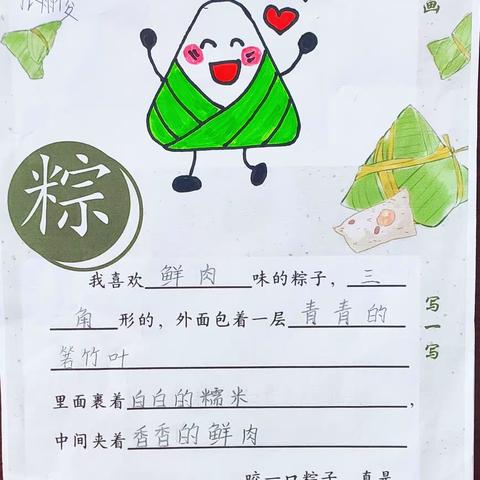 画
粽
我喜欢鲜肉味的粽子，三
角形的，外面包着一层青青的
箬竹叶
里面裹着白白的糯米，
中间夹着香香的鲜肉
咬一口粽子，真是
写一写